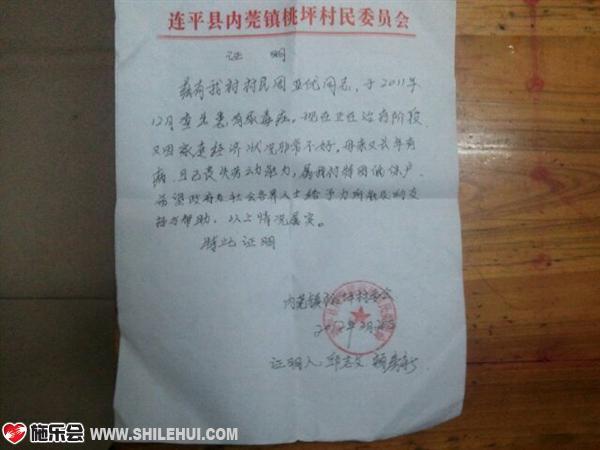 连平县内莞镇桃坪村民委员会
证 明
兹有我村村民周亚优同志，于2011年
12月查出患有尿毒症。现在正在治疗阶段
又因家庭经济状况非常不好。母亲又长年有
病，且已丧失劳动能力，属我村特困低保户。
希望政府及社会各界人士给予力所能及的支
持与帮助，以上情况属实。
特此证明
内莞镇桃坪村委会
2012年
证明人：邱志文 赖
施乐会 WWW.SHILEHUI.COM